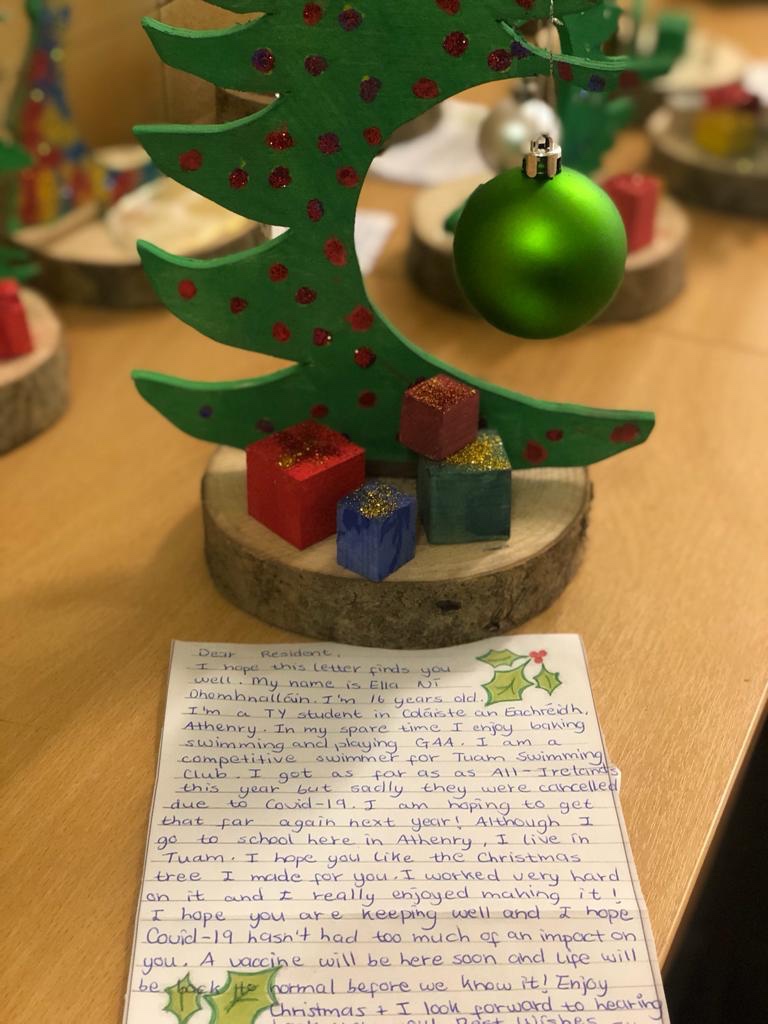 Dear Resident,
I hope this letter finds you
well. My name is Ella Ní
Dhomhnalláin. I'm 16 years old.
I'm a TY student in Coláiste an Eachréidh,
Athenry. In my spare time I enjoy baking
swimming and playing GAA. I am a
competitive swimmer for Tuam Swimming
Club. I got as far as as All-Irelands
this year but sadly they were cancelled
due to Covid-19. I am hoping to get
that far again next year! Although I
go to school here in Athenry, I live in
Tuam. I hope you like the Christmas
tree I made for you. I worked very hard
on it and I really enjoyed making it!
I hope you are keeping well and I hope
Covid-19 hasn't had too much of an impact on
you. A vaccine will be here soon and life will
be back to normal before we know it! Enjoy
Christmas + I look forward to hearing
Best Wishes